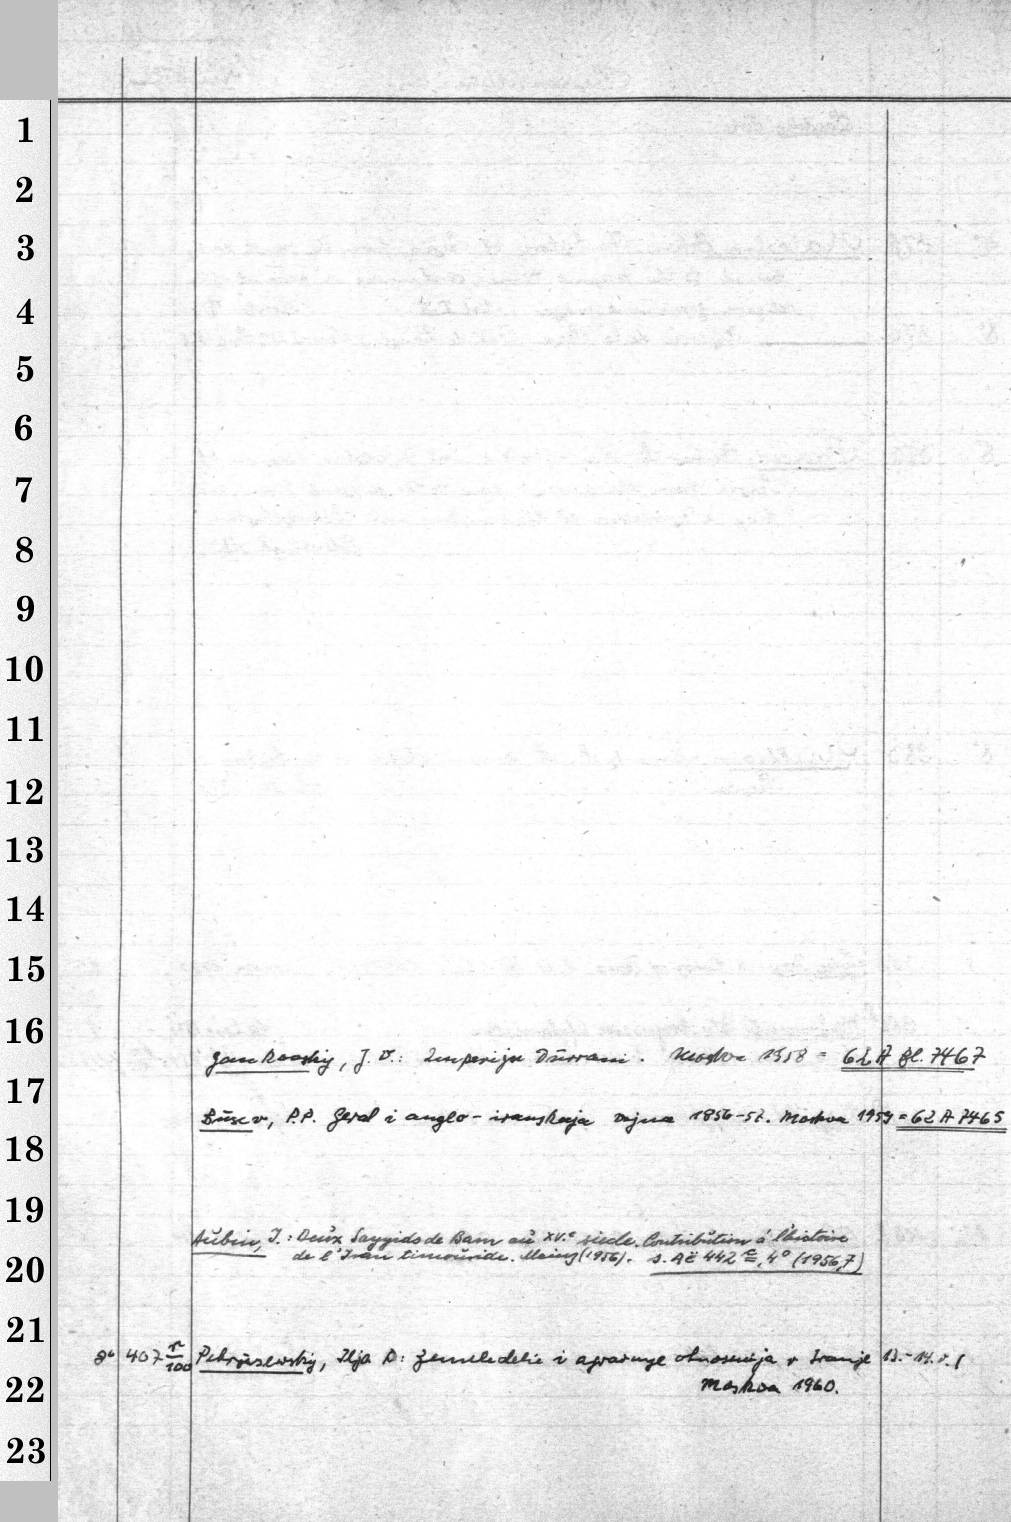 1
2
3
4
5
6
7
8
9
10
11
12
13
14
15
16
Gankovskij, J. V.: Imperija Durrani. Moskva 1958 = 62 A 7467
17
Bušev, P.P. Gerat i anglo-iranskaja vojna 1856-57. Moskva 1959 = 62 A 7465
18
19
Aubin, J.: Deux Sayyids de Bam au XV.e siècle. Contribution à l'histoire
de l'Iran timouride. Mainz (1956). s. Aë 442 4° (1956,7)
20
21
8° 407 r/100 Petruševskij, Ilja P: Zemledelie i agrarnye otnošenija v Iranje 13.-14. v. /
Moskva 1960.
22
23